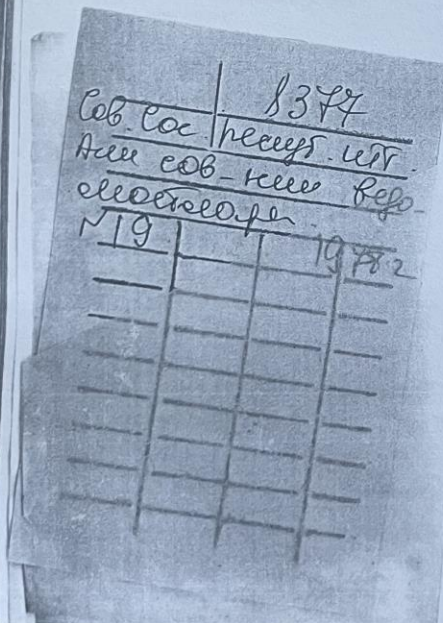 8377
Сов. Сос. респуб. итт.
Али сов-нин ведо-
мостлары
N 19 1978 г